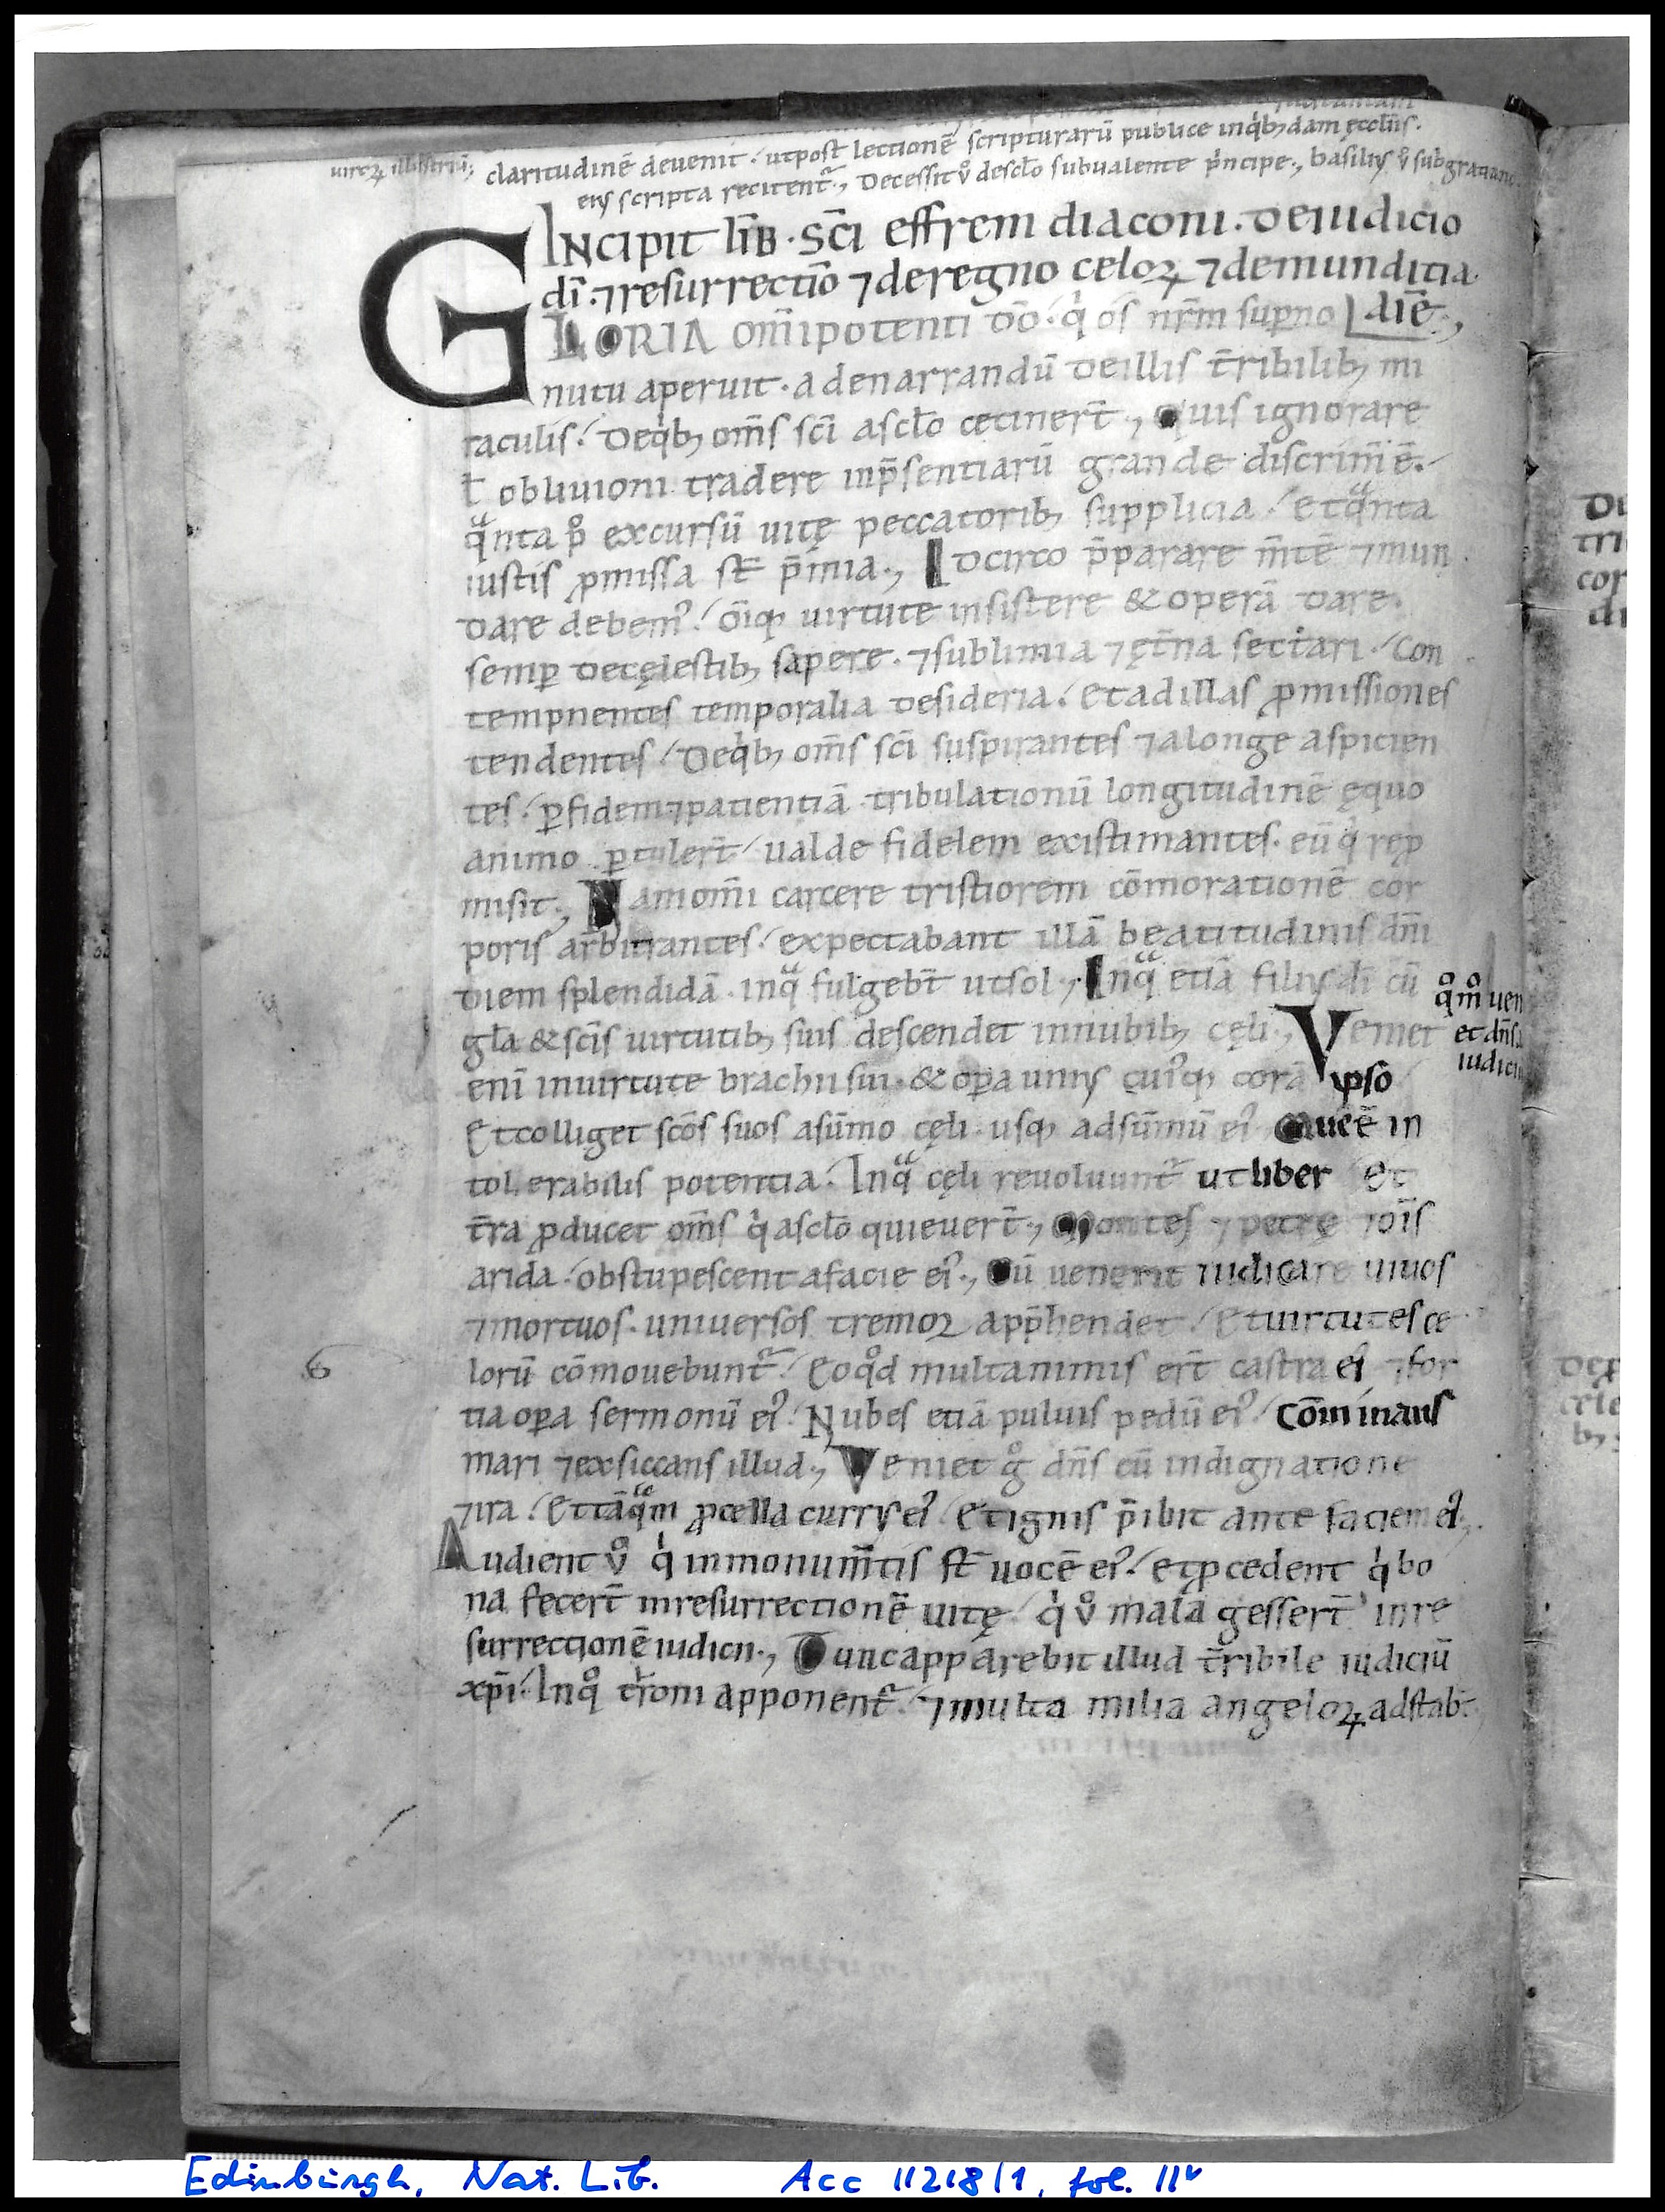 uirorꝝ illustriū;, claritudinē deuenit. utpost lectionē scripturarū publice inqͥbꝫdam ęccłiis.
eiꝰ scripta recitent᷑., Decessit ů desclo subualente pͥncipe., basiliꝰ ů subgratiano
INCIPIT LIB. SCI effrem diaconi. deiudicio
dī. ⁊resurrectiō ⁊deregno celoꝝ ⁊demunditia
GLORIA om̄ipotenti dō. qͥ os nr̄m supno aīē.,
nutu aperuit. adenarrandū deillis t̄ribilibꝫ mi
raculis. Deqͥbꝫ om̄s sc̄i asclo cecinert̄., Quis ignorare
ł obliuioni tradere inp̄sentiarū grande discrim̄ ē.
qͣnta pͦ excursū uitę peccatoribꝫ supplicia. Etqͣnta
iustis ꝓmissa st̄ p̄mia., Idcirco p̄parare m̄tē ⁊mun
dare debemꝰ. ōiqꝫ uirtute insistere & operā dare.
semꝑ decęlestibꝫ sapere. ⁊sublimia ⁊ęt̄na sectari. Con
tempnentes temporalia desideria. Etadillas ꝓmissiones
tendentes. Deqͥbꝫ om̄s sc̄i suspirantes ⁊alonge aspicien
tes. ꝑfidem⁊patientiā tribulationū longitudinē ęquo
animo ꝑtulert̄. ualde fidelem existimantes. eū qͥ reꝓ
misit., Namom̄i carcere tristiorem cōmorationē cor
poris arbitrantes. expectabant illā beatitudinis dn̄i
diem splendidā. inqͣ fulgebt̄ utsol., Inqͣ etiā filiꝰ dī cū
gl̄a & sc̄is uirtutibꝫ suis descendet innubibꝫ cęli., Veniet
qͦmͦ uen
et dn̄s
iudici
enī inuirtute brachii sui. & oꝑa uniꝰ cuiꝰqꝫ corā ipsō
Etcolliget sc̄os suos asūmo cęli. usqꝫ adsūmū eiꝰ in
tolerabilis potentia. Inqͣ cęli reuoluunt᷑ ut liber Et
t̄ra ꝓducet om̄s qͥ asclo quieuert̄., Montes ⁊ petrę ⁊oīs
arida. obstupescent afacie eiꝰ., Cū uenerit iudicare uiuos
⁊mortuos. uniuersos tremoꝛ app̄hendet. Etuirtutes ce
lorū cōmouebunt᷑. Eoqͦd multanimis ert̄ castra eiꝰ ⁊for
tia oꝑa sermonū eiꝰ. Nubes etiā puluis pedū eiꝰ. Cōminans
mari ⁊exsiccans illud., Veniet gͦ dn̄s cū indignatione
⁊ira. Ettāqͣm ꝓcella currꝰ eiꝰ. Etignis p̄ibit ante faciem eiꝰ.,
Audient ů qͥ inmonum̄tis st̄ uocē eiꝰ. etꝓcedent qͥ bo
na fecert̄ inresurrectionē uitę. qͥ ů mala gessert̄ inre
surrectionē iudicii., Tunc apparebit illud t̄ribile iudiciū
xp̄i. Inqͦ troni apponent᷑. ⁊multa milia angeloꝝ adstabt̄
Edinburgh, Nat. Lib. Acc 11218/1, fol. 11ᵛ